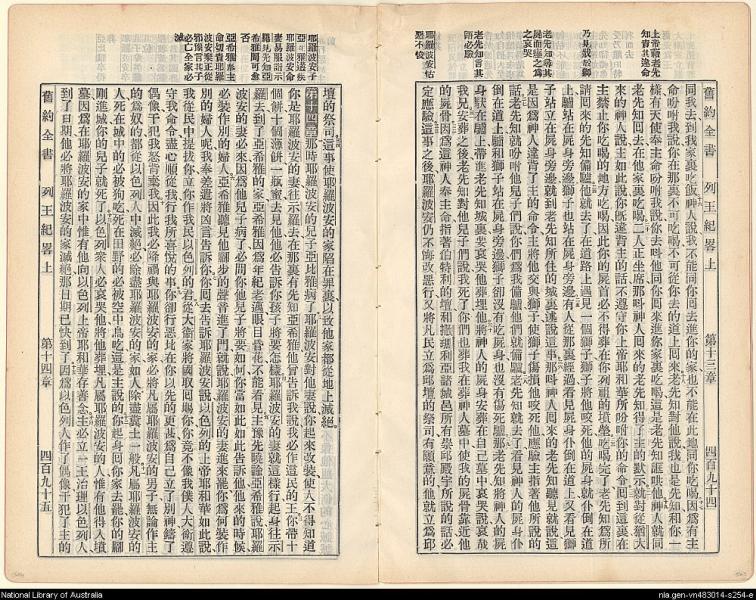 上帝藉老先
知責其違命
乃見殺於獅
老先知尋其
屍而葬之爲
之哀哭
老先知言其
語必驗
耶羅波安怙
惡不悛
同我去到我家裏吃飯神人說我不能同你囘去進你的家也不能在此地同你吃喝因爲有主
命吩咐我說你在那裏不可吃喝不可從你去的道上囘來老先知對他說我也是先知和你一
樣有天使奉主命吩咐我說你去叫他同你囘來進你家裏吃喝這是老先知誆哄他神人就同
老先知囘去在他家裏吃喝二人正坐席那叫神人囘來的老先知得了主的默示就對從猶大
來的神人說主如此說你旣違背主的話不遵守你上帝耶和華所吩咐你的命令囘到這裏在
主禁止你吃喝的地方吃喝因此你的屍首必不得葬在你列祖的墳塋吃喝完了老先知爲所
請囘來的先知備驢他就去了在道路上遇見一個獅子獅子將他咬死他的屍身就仆倒在道
上驢站在屍身旁邊獅子也站在屍身旁邊有人從那裏經過看見屍身仆倒在道上又看見獅
子站在屍身旁邊就到老先知所住的城裏述說這事那叫神人囘來的老先知聽見就說這
是因爲神人違背了主的命令主將他交與獅子使獅子傷損他咬死他應驗主指著他所說的
話老先知就吩咐他兒子們說你們爲我備驢他們就備驢老先知就去了看見神人的屍身仆
倒在道上驢和獅子站在屍身旁邊獅子卻沒有吃屍身也沒有傷死驢那老先知將神人的屍
身馱在驢上帶進老先知城裏要哀哭他葬埋他將神人的屍身安葬在自己墓中哀哭說哀哉
我兄安葬之後老先知對他兒子們說我死了你們也葬我在葬神人墓中使我的屍骨靠近他
的屍骨因爲這神人奉主命指著伯特利的壇和撒瑪利亞諸城邑所有崇邱殿宇所說的話必
定應驗這事之後耶羅波安仍不悔改惡行又將凡民立爲邱壇的祭司有願意的他就立爲邱
舊約全書 列王紀畧上 第十三章 四百九十四
耶羅波安子
亞比雅遘疾
耶羅波安命
妻易服詣示
羅見先知亞
希雅問可愈
否
亞希雅奉主
命切責耶羅
波安棄主從
邪像言其子
必亡全家必
滅
壇的祭司這事使耶羅波安的家陷在罪裏以致他家都從地上滅絕
第十四章那時耶羅波安的兒子亞比雅病了耶羅波安對他妻說你起來改裝使人不得知道
你是耶羅波安的妻往示羅去在那裏有先知亞希雅他曾告訴我說我必作這民的王你帶十
個餅十個薄餅一瓶蜜去見他他必告訴你孩子將要怎樣耶羅波安的妻就這樣行起身往示
羅去到了亞希雅的家亞希雅因爲年紀老邁眼目昏花不能看見主豫先曉諭亞希雅說耶羅
波安的妻必來因爲他兒子病了必問你他兒子將要如何你當如此如此告訴他他來的時候
必裝作別的婦人亞希雅聽見他脚步的聲音進了門就說耶羅波安的妻進來罷你爲何裝作
別的婦人呢我奉差遣將凶言告訴你你囘去告訴耶羅波安說以色列的上帝耶和華如此說
我從民中提拔你立你作我民以色列的君從大衛家將國取囘賜你你竟不像我僕人大衛遵
守我命令盡心順從我行我所喜悅的事你卻行惡比在你以先的更甚爲自己立了別神鑄了
偶像干犯我怒背棄我因此我必降禍與耶羅波安的家必將凡屬耶羅波安的男子無論作主
的爲奴的都從以色列人中滅絕必除盡耶羅波安的家如人除盡糞土一般凡屬耶羅波安的
人死在城中的必被狗吃死在田野的必被空中鳥吃這是主說的你起身囘你家去罷你的脚
剛進城你的兒子就死了以色列衆人必哀哭他將他葬埋凡屬耶羅波安的人惟有他得入墳
墓因爲在耶羅波安的家中惟有他向以色列上帝耶和華存善念主必立一王治理以色列人
到了日期他必將耶羅波安的家滅絕那日期已快到了因爲以色列人作了偶像干犯了主的
舊約全書 列王紀畧上 第十四章 四百九十五
National Library of Australia
nla.gen-vn483014-s254-e